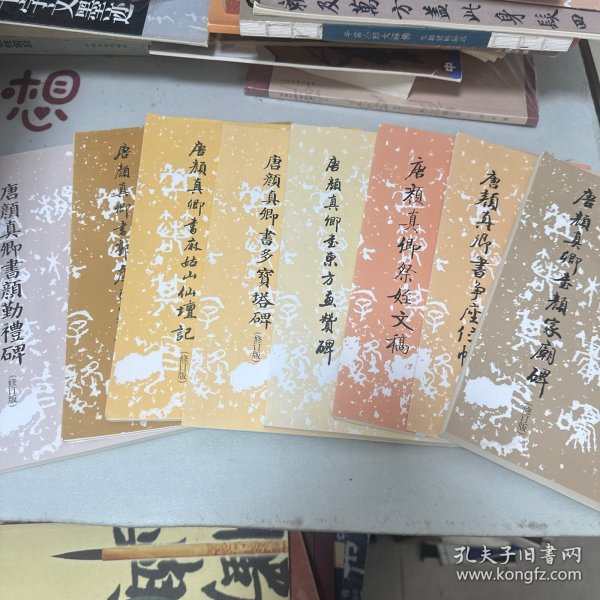 想
唐顏真卿書顏勤禮碑
(修订版)
唐顏真卿書郭
唐顏真卿書麻姑山仙壇記
(修订版)
唐顏真卿書多寶塔碑
(修订版)
唐顏真卿書東方畫贊碑
唐顏真卿祭姪文稿
唐顏真卿書爭座位帖
唐顏真卿書顏家廟碑
(修订版)
中
孔夫子旧书网
www.kongfz.com